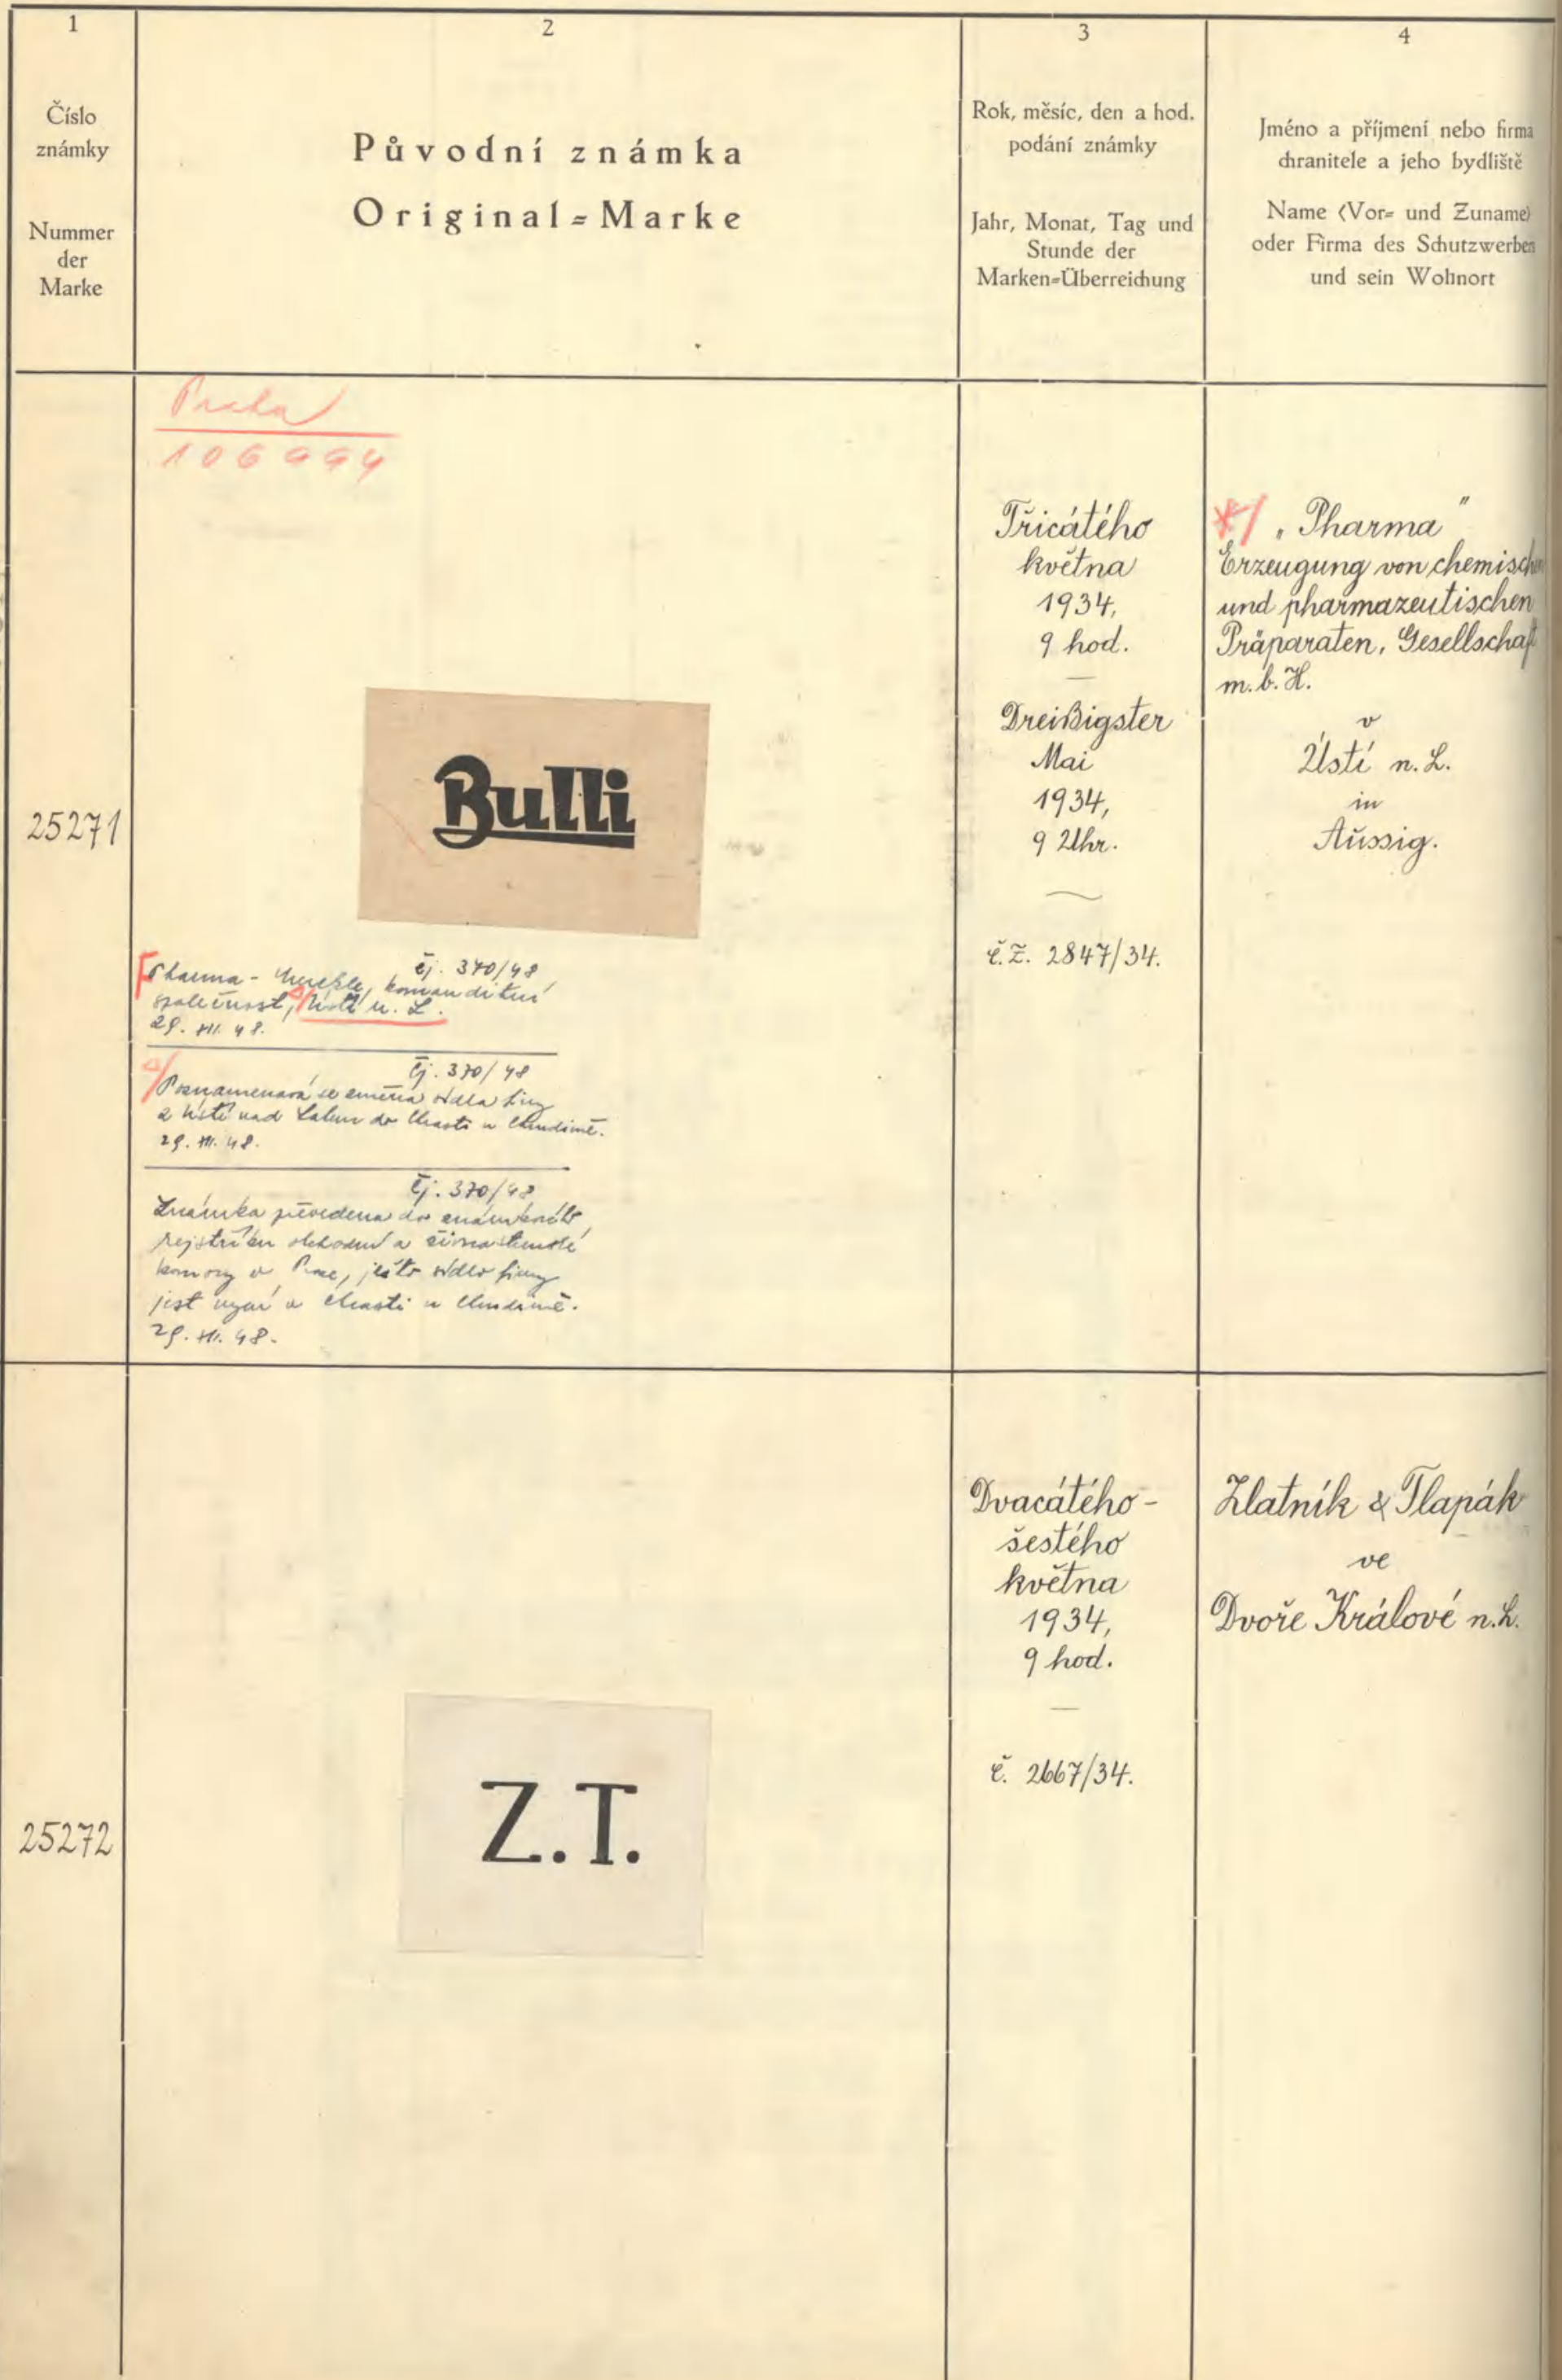 1
Číslo
známky
Nummer
der
Marke
2
Původní známka
Original=Marke
3
Rok, měsíc, den a hod.
podání známky
Jahr, Monat, Tag und
Stunde der
Marken=Überreichung
4
Jméno a příjmení nebo firma
chranitele a jeho bydliště
Name (Vor= und Zuname)
oder Firma des Schutzwerben
und sein Wohnort
25271
Praha
106994
Bulli
čj. 370/48
Pharma - komanditní
společnost, Ústí n. L.
29. XII. 48.
čj. 370/48
Poznamenává se změna sídla firmy
z Ústí nad Labem do Chrasti u Chrudimě.
29. XII. 48.
čj. 370/48
Známka převedena do známkového
rejstříku obchodní a živnostenské
komory v Praze, ježto sídlo firmy
jest nyní v Chrasti u Chrudimě.
29. XII. 48.
Třicátého
května
1934,
9 hod.
Dreißigster
Mai
1934,
9 Uhr.
č.ž. 2847/34.
*/ „Pharma"
Erzeugung von chemischen
und pharmazeutischen
Präparaten, Gesellschaft
m.b.H.
v
Ústí n.L.
in
Aussig.
25272
Z.T.
Dvacátého-
šestého
května
1934,
9 hod.
č. 2667/34.
Zlatník & Tlapák
ve
Dvoře Králové n.L.